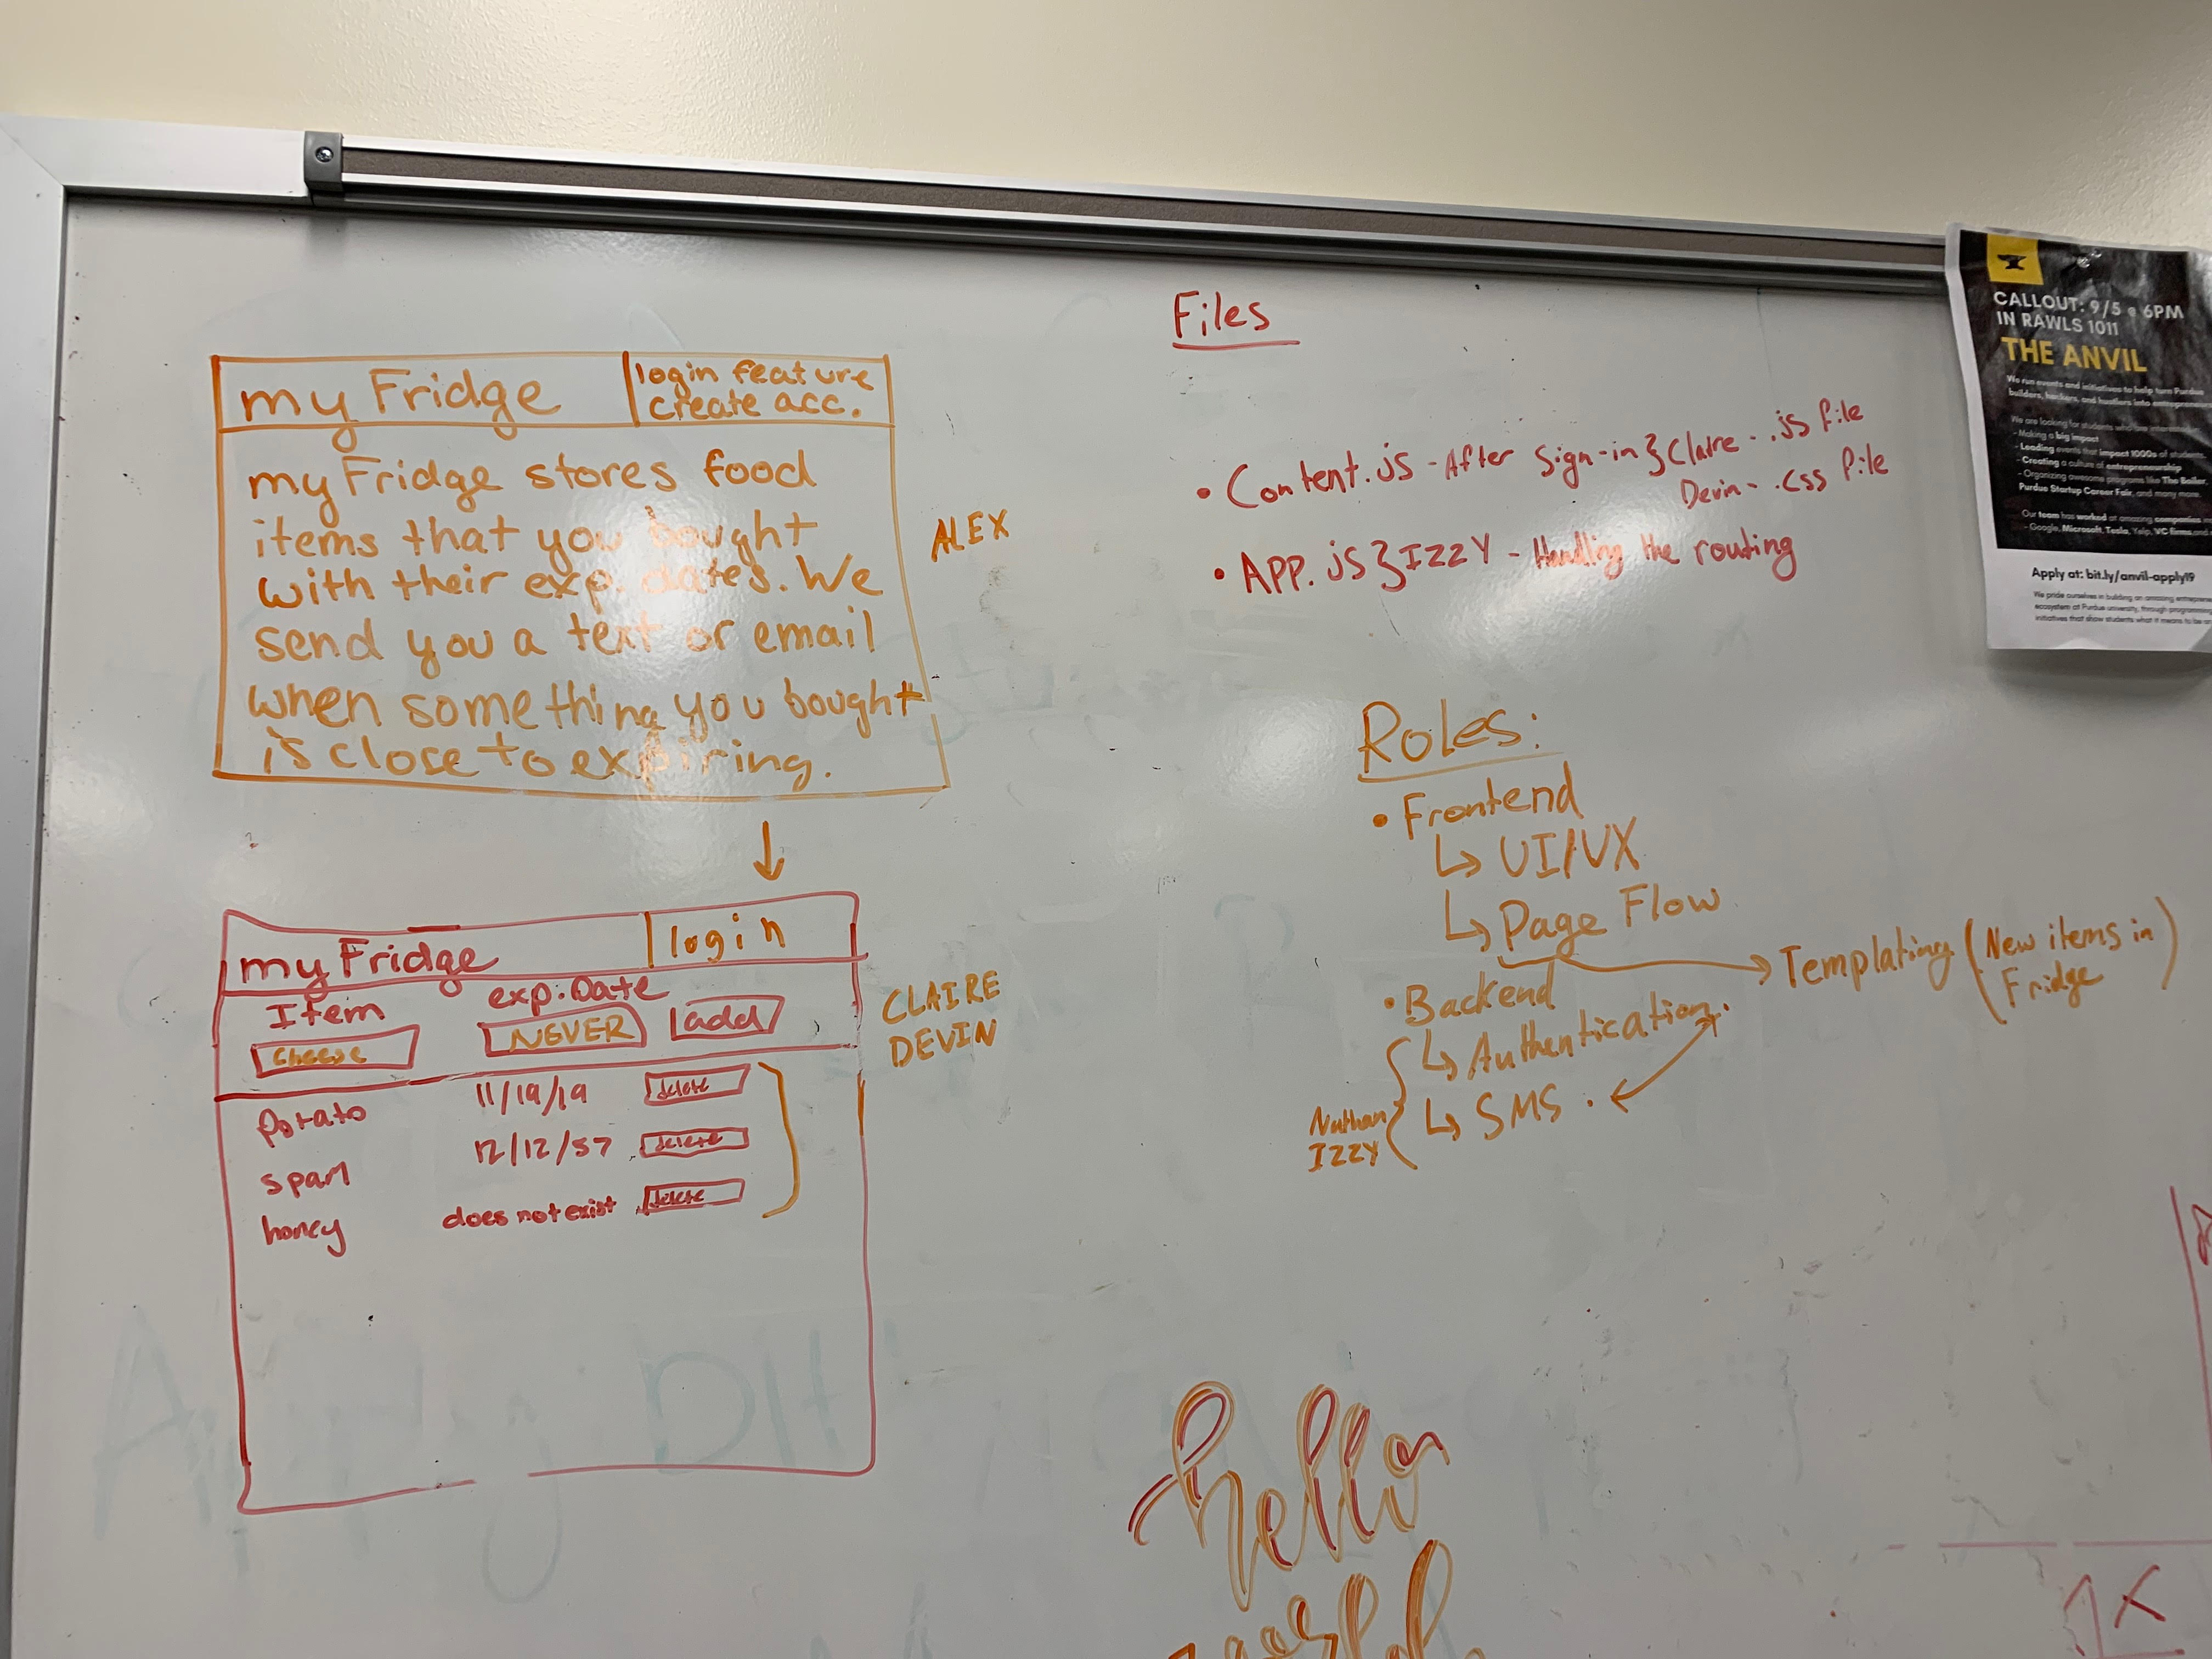 my Fridge
login feature
create acc.
my Fridge stores food
items that you bought
with their exp. dates. We
send you a text or email
when something you bought
is close to expiring.
ALEX
my Fridge
login
Item
exp. Date
Cheese
NEVER
add
CLAIRE
DEVIN
Potato
11/19/19
delete
spam
12/12/57
delete
honey
does not exist
delete
Files
• Content.js - After Sign-in } Claire - .js file
Devin - .css file
• APP.js } IZZY - Handling the routing
Roles:
• Frontend
↳ UI/UX
↳ Page Flow
Templating (New items in
Fridge)
• Backend
↳ Authentication
↳ SMS
Nathan
IZZY
hello
CALLOUT: 9/5 @ 6PM
IN RAWLS 1011
THE ANVIL
We run events and initiatives to help turn Purdue
builders, hackers, and hustlers into
We are looking for students who are
- Making a big impact
- Leading events that impact 1000s of students
- Creating a culture of entrepreneurship
- Organizing awesome programs like The Boiler,
Purdue Startup Career Fair, and many more.
Our team has worked at amazing companies
- Google, Microsoft, Tesla, Yelp, VC firms, and
Apply at: bit.ly/anvil-apply19
We pride ourselves in building an amazing
ecosystem at Purdue university, through
initiatives that show students what it means to be
1X